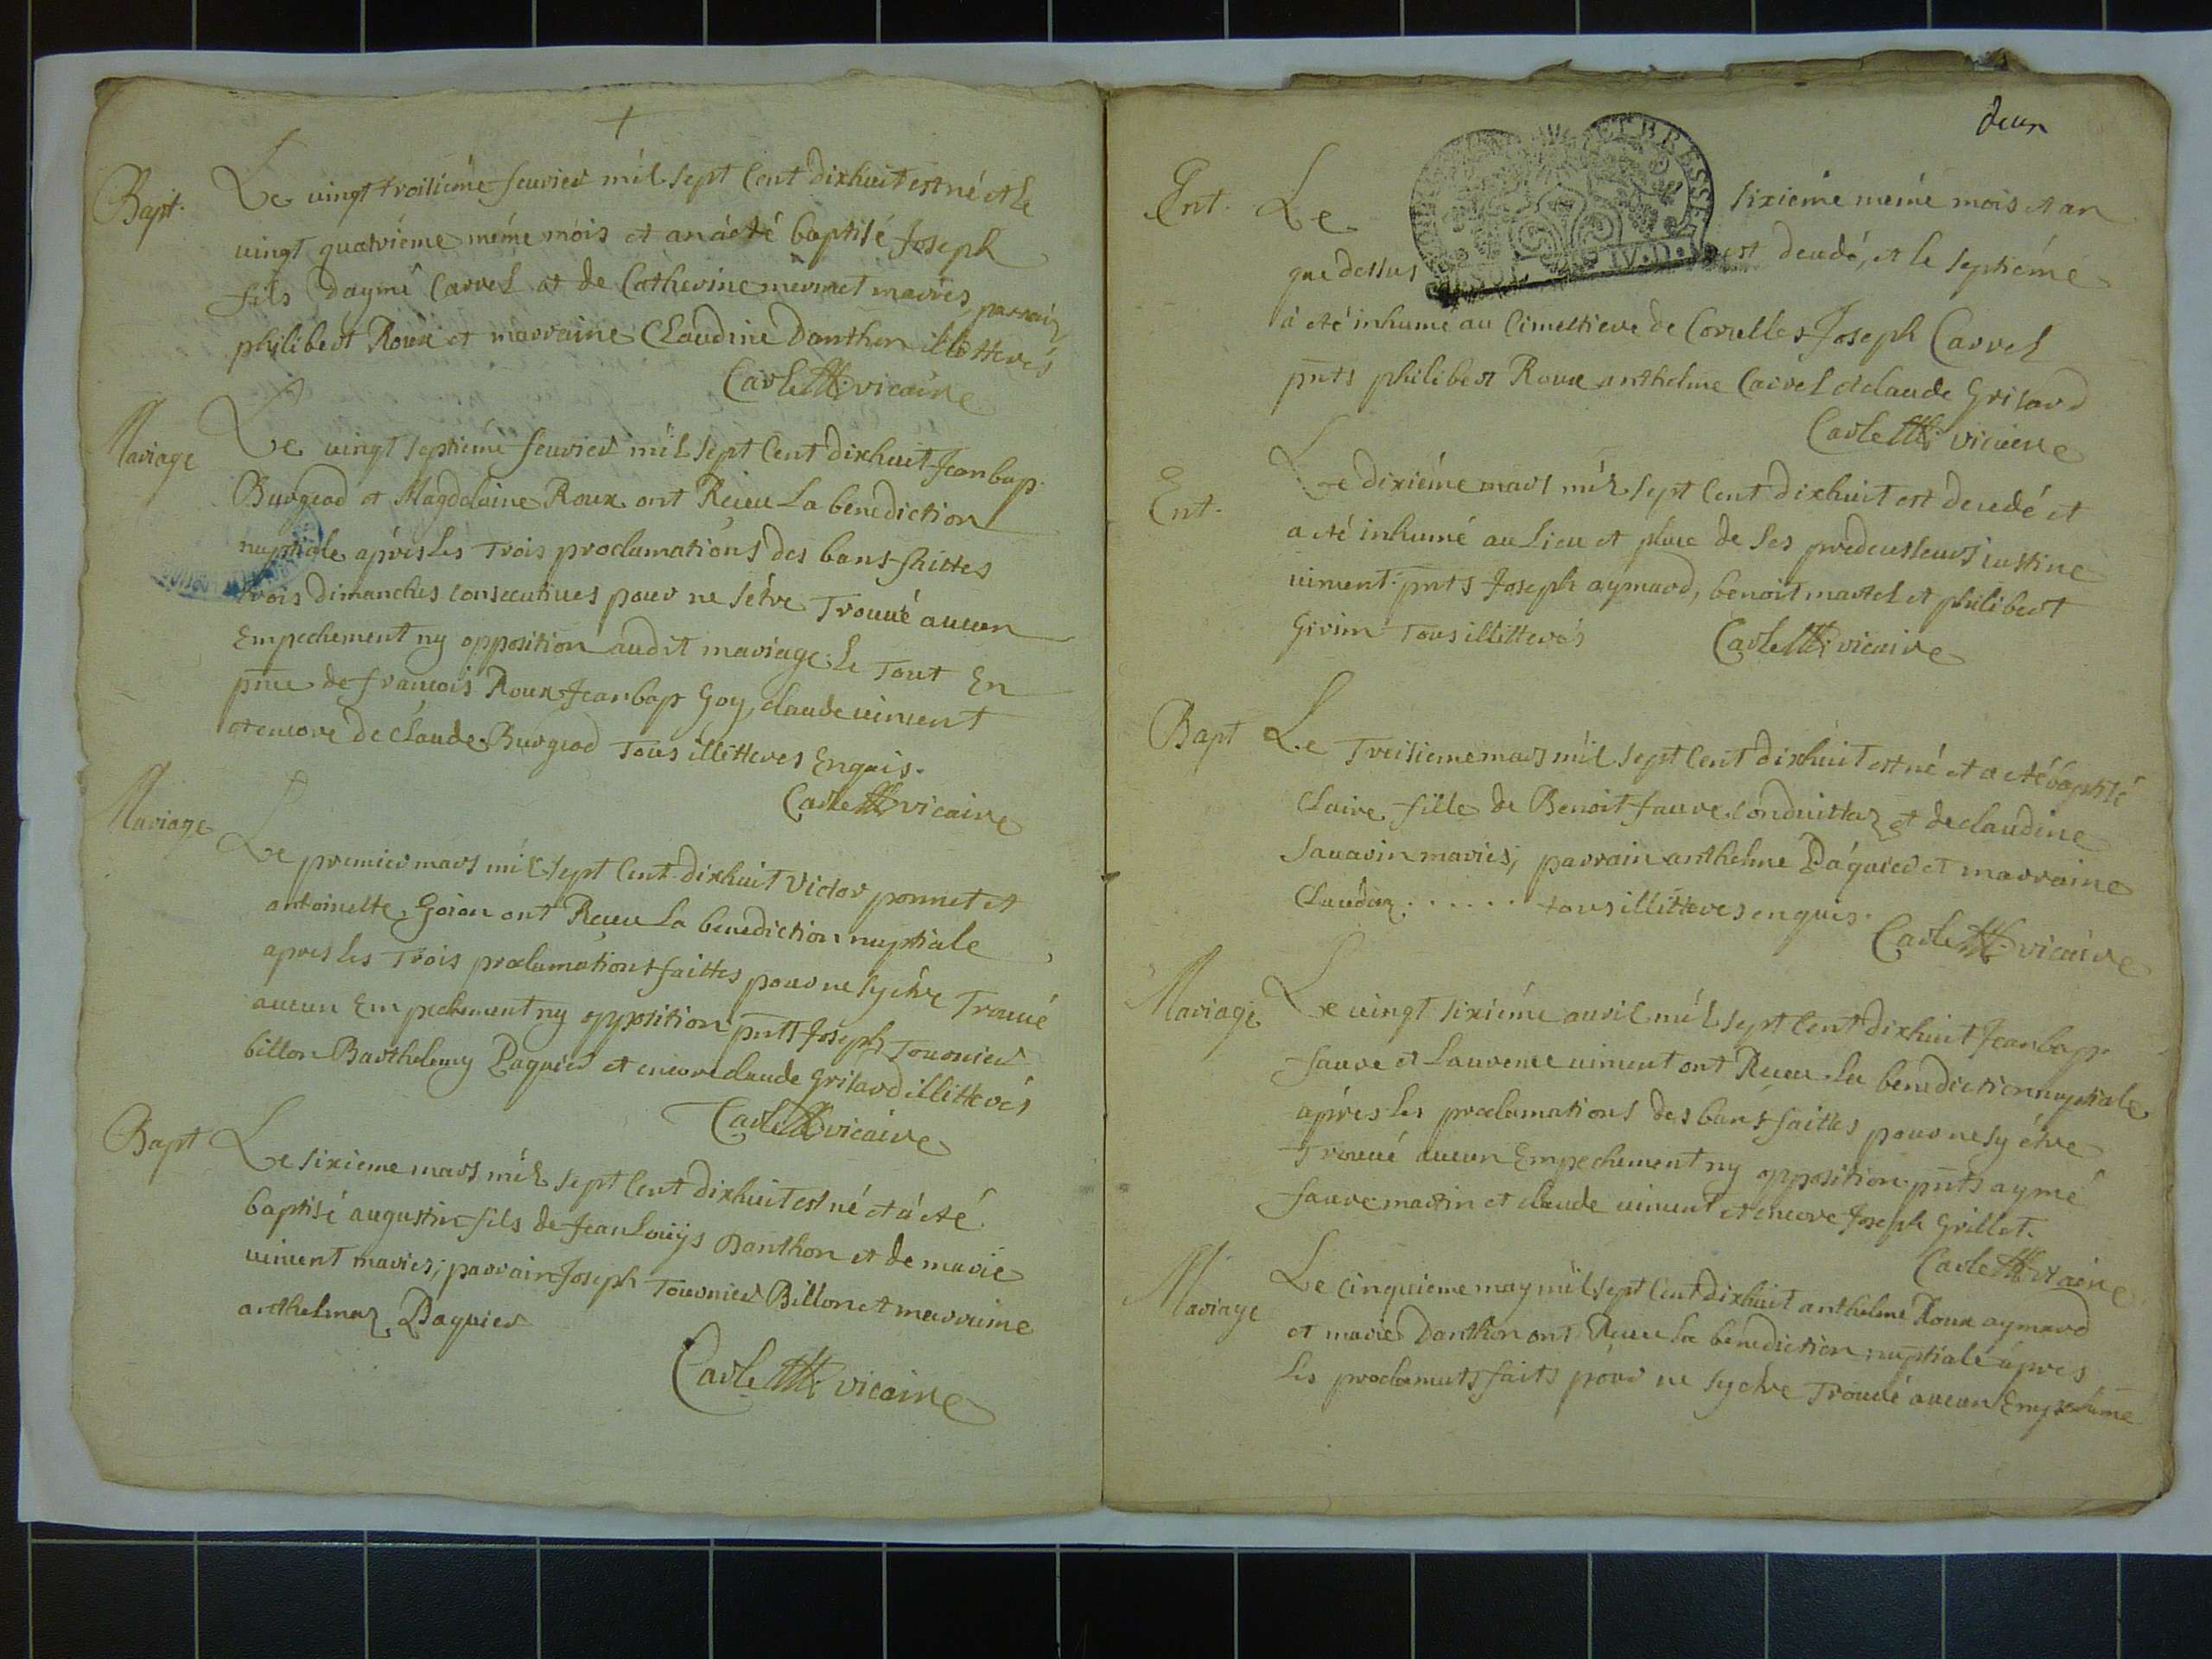 Bapt.
Le vingt troisiéme feuvier mil sept Cent dixhuit est né et le
vingt quatriéme méme mois et an à été baptisé Joseph
fils d'aymé Carrel et de Catherine mermet mariés, parrain
philibert Roux et marraine Claudine Danthon illitterés
Carlet vicaire
Mariage
Le vingt septiéme feuvrier mil sept Cent dixhuit Jeanbap.
Burgiod et Magdelaine Roux ont Receu La benediction
nuptiale aprés les Trois proclamations des bans faittes
trois dimanches consecutiues pour ne sétre Trouué aucun
Empechement ny opposition audit mariage. le Tout En
pnce de francois Roux Jeanbap Goy, claude vincent
et encore de Claude Burgiod Tous illitteres Enquis.
Carlet vicaire
Mariage
Le premier mars mil sept Cent dixhuit Victor ponnet et
antoinette Goion ont Receu La benediction nuptiale
apres les Trois proclamations faittes pour ne sy étre Trouué
aucun Empechement ny opposition pnts Joseph Tournier
billon Barthelemy Paquier et encore claude Grisard illitterés
Carlet vicaire
Bapt
Le sixieme mars mil sept Cent dixhuit est né et à été
baptisé augustin fils de Jean Louijs Danthon et de marie
vincent mariés; parrain Joseph Tournier Billon et marraine
anthelmaz Paquier
Carlet vicaire
deux
Ent. Le sixiéme méme mois et an
que dessus est decedé, et le septiéme
à été inhumé au Cimettiere de Conselles Joseph Carrel
pnts philibert Roux anthelme Cairel et claude Grisard
Carlet vicaire
Ent.
Le dixiéme mars mil sept Cent dixhuit est decedé et
a été inhumé au Lieu et place de ses predecesseurs iustine
vincent. pnts Joseph aymard, benoit martel et philibert
Girin Tous illitterés Carlet vicaire
Bapt Le Treisieme mars mil sept Cent dixhuit est né et a été baptisé
Claire fille de Benoit faure conduittaz et de claudine
Sauarin mariés; parrain anthelme Paquier et marraine
Claudaz . . . . . . tous illitteres enquis.
Carlet vicaire
Mariage
Le vingt sixiéme auril mil sept Cent dixhuit Jeanbap.
faure et Laurence vincent ont Receu La benediction nuptiale
aprés les proclamations des bans faittes pour ne sy étre
Trouué aucun Empechement ny opposition. pnts aymé
faure martin et claude vincent et encore Joseph Grillet.
Carlet vicaire
Mariage
Le cinquieme may mil sept Cent dixhuit anthelme Roux aymard
et marie Danthon ont Receu La benediction nuptiale apres
les proclamats faits pour ne sy etre Trouué aucun Empecheme